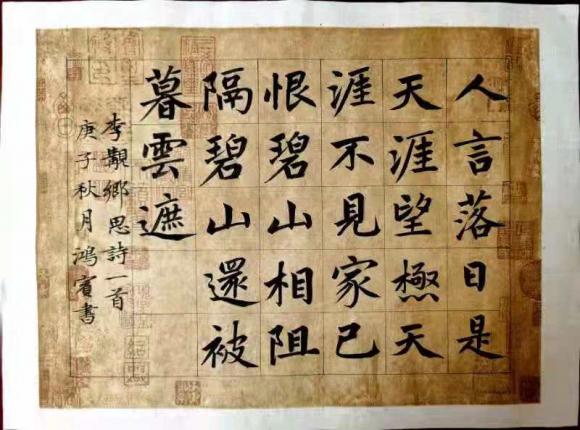 人言落日是
天涯望極天
涯不見家已
恨碧山相阻
隔碧山還被
暮雲遮
李覯鄉思詩一首
庚子秋月鴻賓書